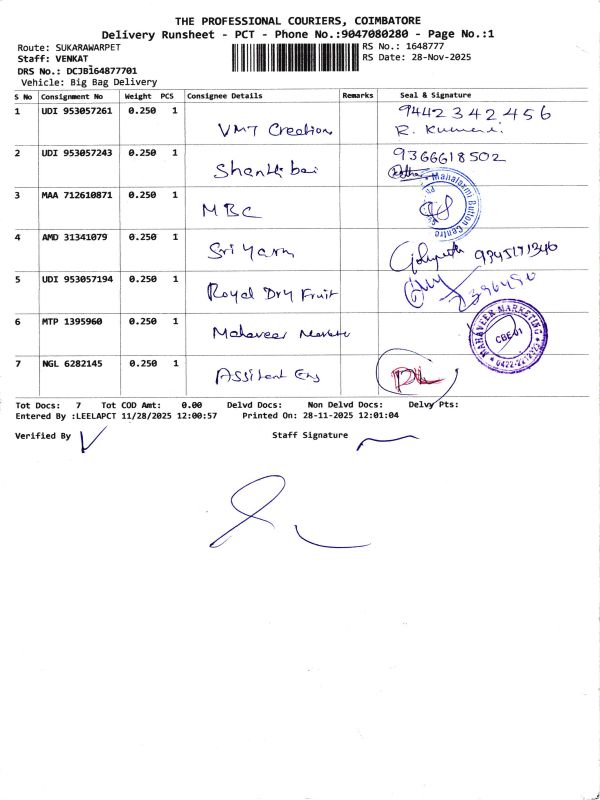 THE PROFESSIONAL COURIERS, COIMBATORE
Delivery Runsheet - PCT - Phone No.:9047080280 - Page No.:1
Route: SUKARAWARPET
RS No.: 1648777
Staff: VENKAT
RS Date: 28-Nov-2025
DRS No.: DCJB164877701
Vehicle: Big Bag Delivery
S No Consignment No Weight PCS Consignee Details Remarks Seal & Signature
1 UDI 953057261 0.250 1 VMT Creation 9442342456
R. Kumari
2 UDI 953057243 0.250 1 Shanthi bai 9366618502
3 MAA 712610871 0.250 1 MBC
Mahalaxmi Button Centre
4 AMD 31341079 0.250 1 Sri Yarn
5 UDI 953057194 0.250 1 Royal Dry Fruit
6 MTP 1395960 0.250 1 Mahaveer
MAHAVEER MARKETING
CBE-01
7 NGL 6282145 0.250 1
Tot Docs: 7 Tot COD Amt: 0.00 Delvd Docs: Non Delvd Docs: Delvy Pts:
Entered By :LEELAPCT 11/28/2025 12:00:57 Printed On: 28-11-2025 12:01:04
Verified By
Staff Signature